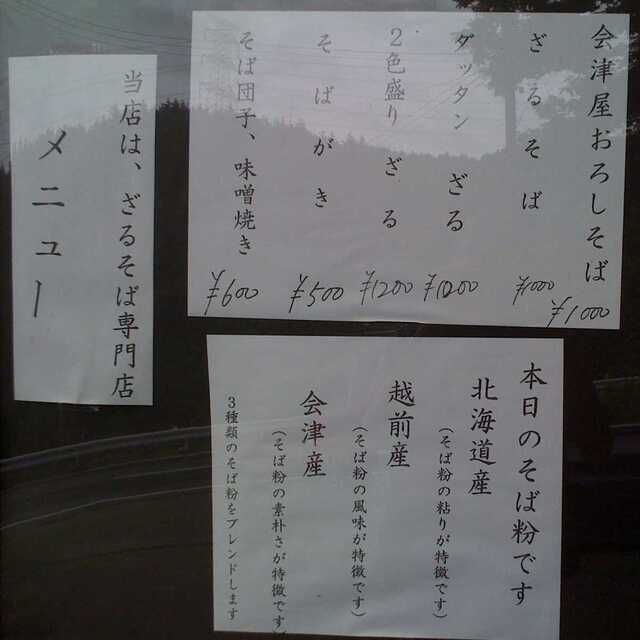 会津屋おろしそば ¥1000
ざるそば ¥1000
ダッタンざる ¥1200
2色盛りざる ¥1200
そばがき ¥500
そば団子、味噌焼き ¥600
当店は、ざるそば専門店
メニュー
本日のそば粉です
北海道産
(そば粉の粘りが特徴です)
越前産
(そば粉の風味が特徴です)
会津産
(そば粉の素朴さが特徴です)
3種類のそば粉をブレンドします